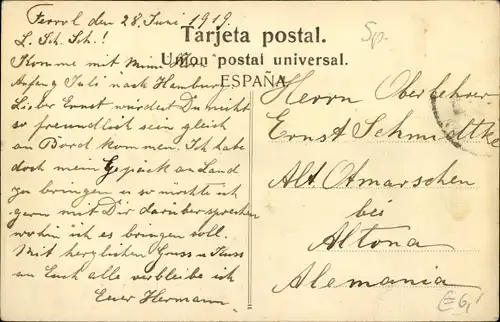 Ferrol den 28. Juni 1919.
L. Sch. Sch.!
Komme mit
Anfang Juli nach Hamburg
Lieber Ernst würdest Du nicht
so freundlich sein gleich
an Bord kommen. Ich habe
doch mein Gepäck an Land
zu bringen u so möchte ich
gern mit Dir darüber sprechen
wohin ich es bringen soll.
Mit herzlichen Gruss u Kuss
an Euch alle verbleibe ich
Euer Hermann
Tarjeta postal.
Union postal universal.
ESPAÑA
Sp.
Herrn Oberlehrer
Ernst Schmidtke
Alt Otmarschen
bei
Altona
Alemania